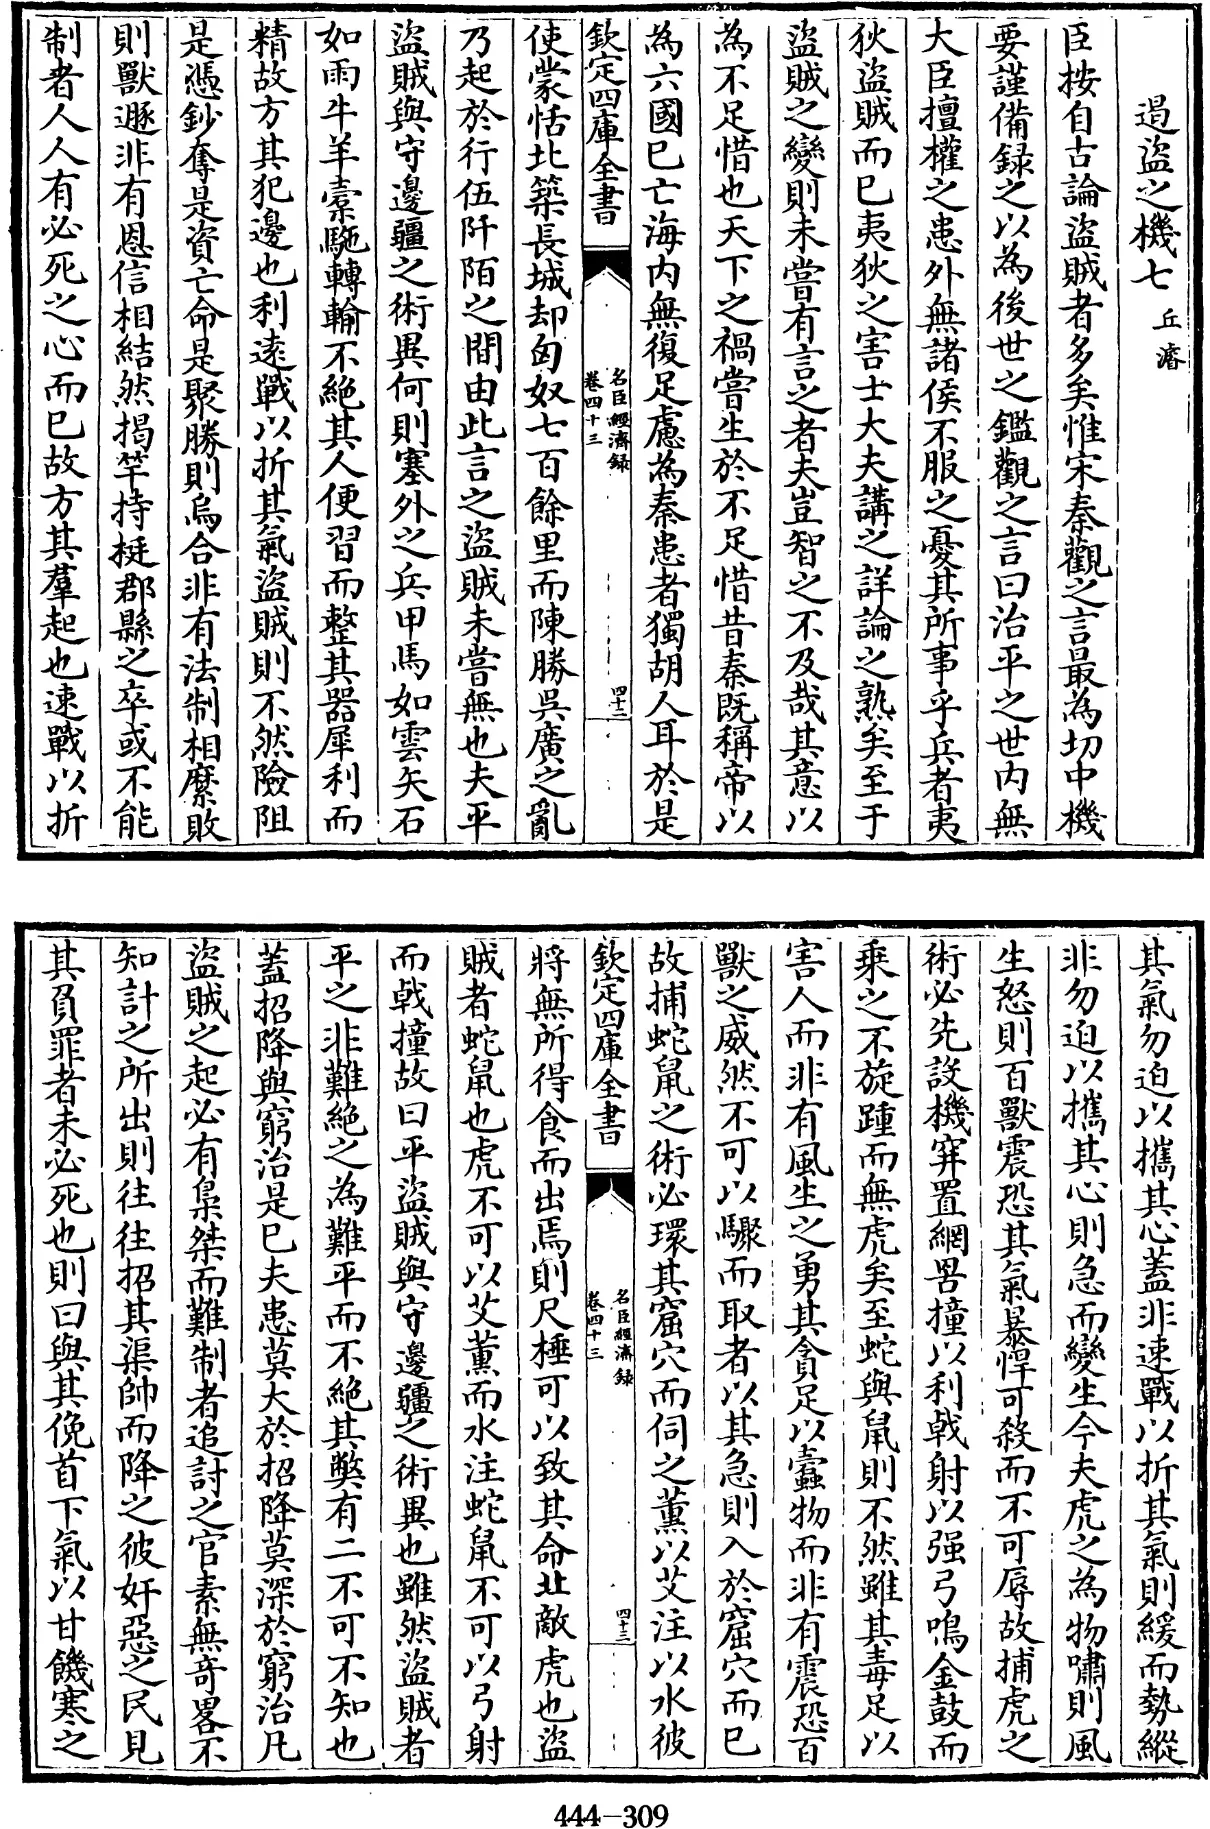 遏盜之機七 丘濬
臣按自古論盜賊者多矣惟宋秦觀之言最為切中機
要謹備録之以為後世之鑑觀之言曰治平之世内無
大臣擅權之患外無諸侯不服之憂其所事乎兵者夷
狄盜賊而已夷狄之害士大夫講之詳論之熟矣至于
盜賊之變則未嘗有言之者夫豈智之不及哉其意以
為不足惜也天下之禍嘗生於不足惜昔秦既稱帝以
為六國已亡海内無復足慮為秦患者獨胡人耳於是
使蒙恬北築長城却匈奴七百餘里而陳勝吳廣之亂
乃起於行伍阡陌之間由此言之盜賊未嘗無也夫平
盜賊與守邊疆之術異何則塞外之兵甲馬如雲矢石
如雨牛羊橐駞轉輸不絶其人便習而整其器犀利而
精故方其犯邊也利速戰以折其氣盜賊則不然險阻
是憑鈔奪是資亡命是聚勝則烏合非有法制相縻敗
則獸遯非有恩信相結然揭竿持梃郡縣之卒或不能
制者人人有必死之心而已故方其羣起也速戰以折
欽定四庫全書
名臣經濟録
卷四十三
四十二
其氣勿迫以攜其心蓋非速戰以折其氣則緩而勢縱
非勿迫以攜其心則急而變生今夫虎之為物嘯則風
生怒則百獸震恐其氣暴悍可殺而不可辱故捕虎之
術必先設機穽置網罟撞以利戟射以强弓鳴金鼓而
乘之不旋踵而無虎矣至蛇與鼠則不然雖其毒足以
害人而非有風生之勇其貪足以蠧物而非有震恐百
獸之威然不可以驟而取者以其急則入於窟穴而已
故捕蛇鼠之術必環其窟穴而伺之薰以艾注以水彼
將無所得食而出焉則尺棰可以致其命北敵虎也盜
賊者蛇鼠也虎不可以艾薰而水注蛇鼠不可以弓射
而戟撞故曰平盜賊與守邊疆之術異也雖然盜賊者
平之非難絶之為難平而不絶其弊有二不可不知也
蓋招降與窮治是已夫患莫大於招降莫深於窮治凡
盜賊之起必有梟桀而難制者追討之官素無奇畧不
知計之所出則往往招其渠帥而降之彼奸惡之民見
其負罪者未必死也則曰與其俛首下氣以甘饑寒之
欽定四庫全書
名臣經濟録
卷四十三
四十三
444-309